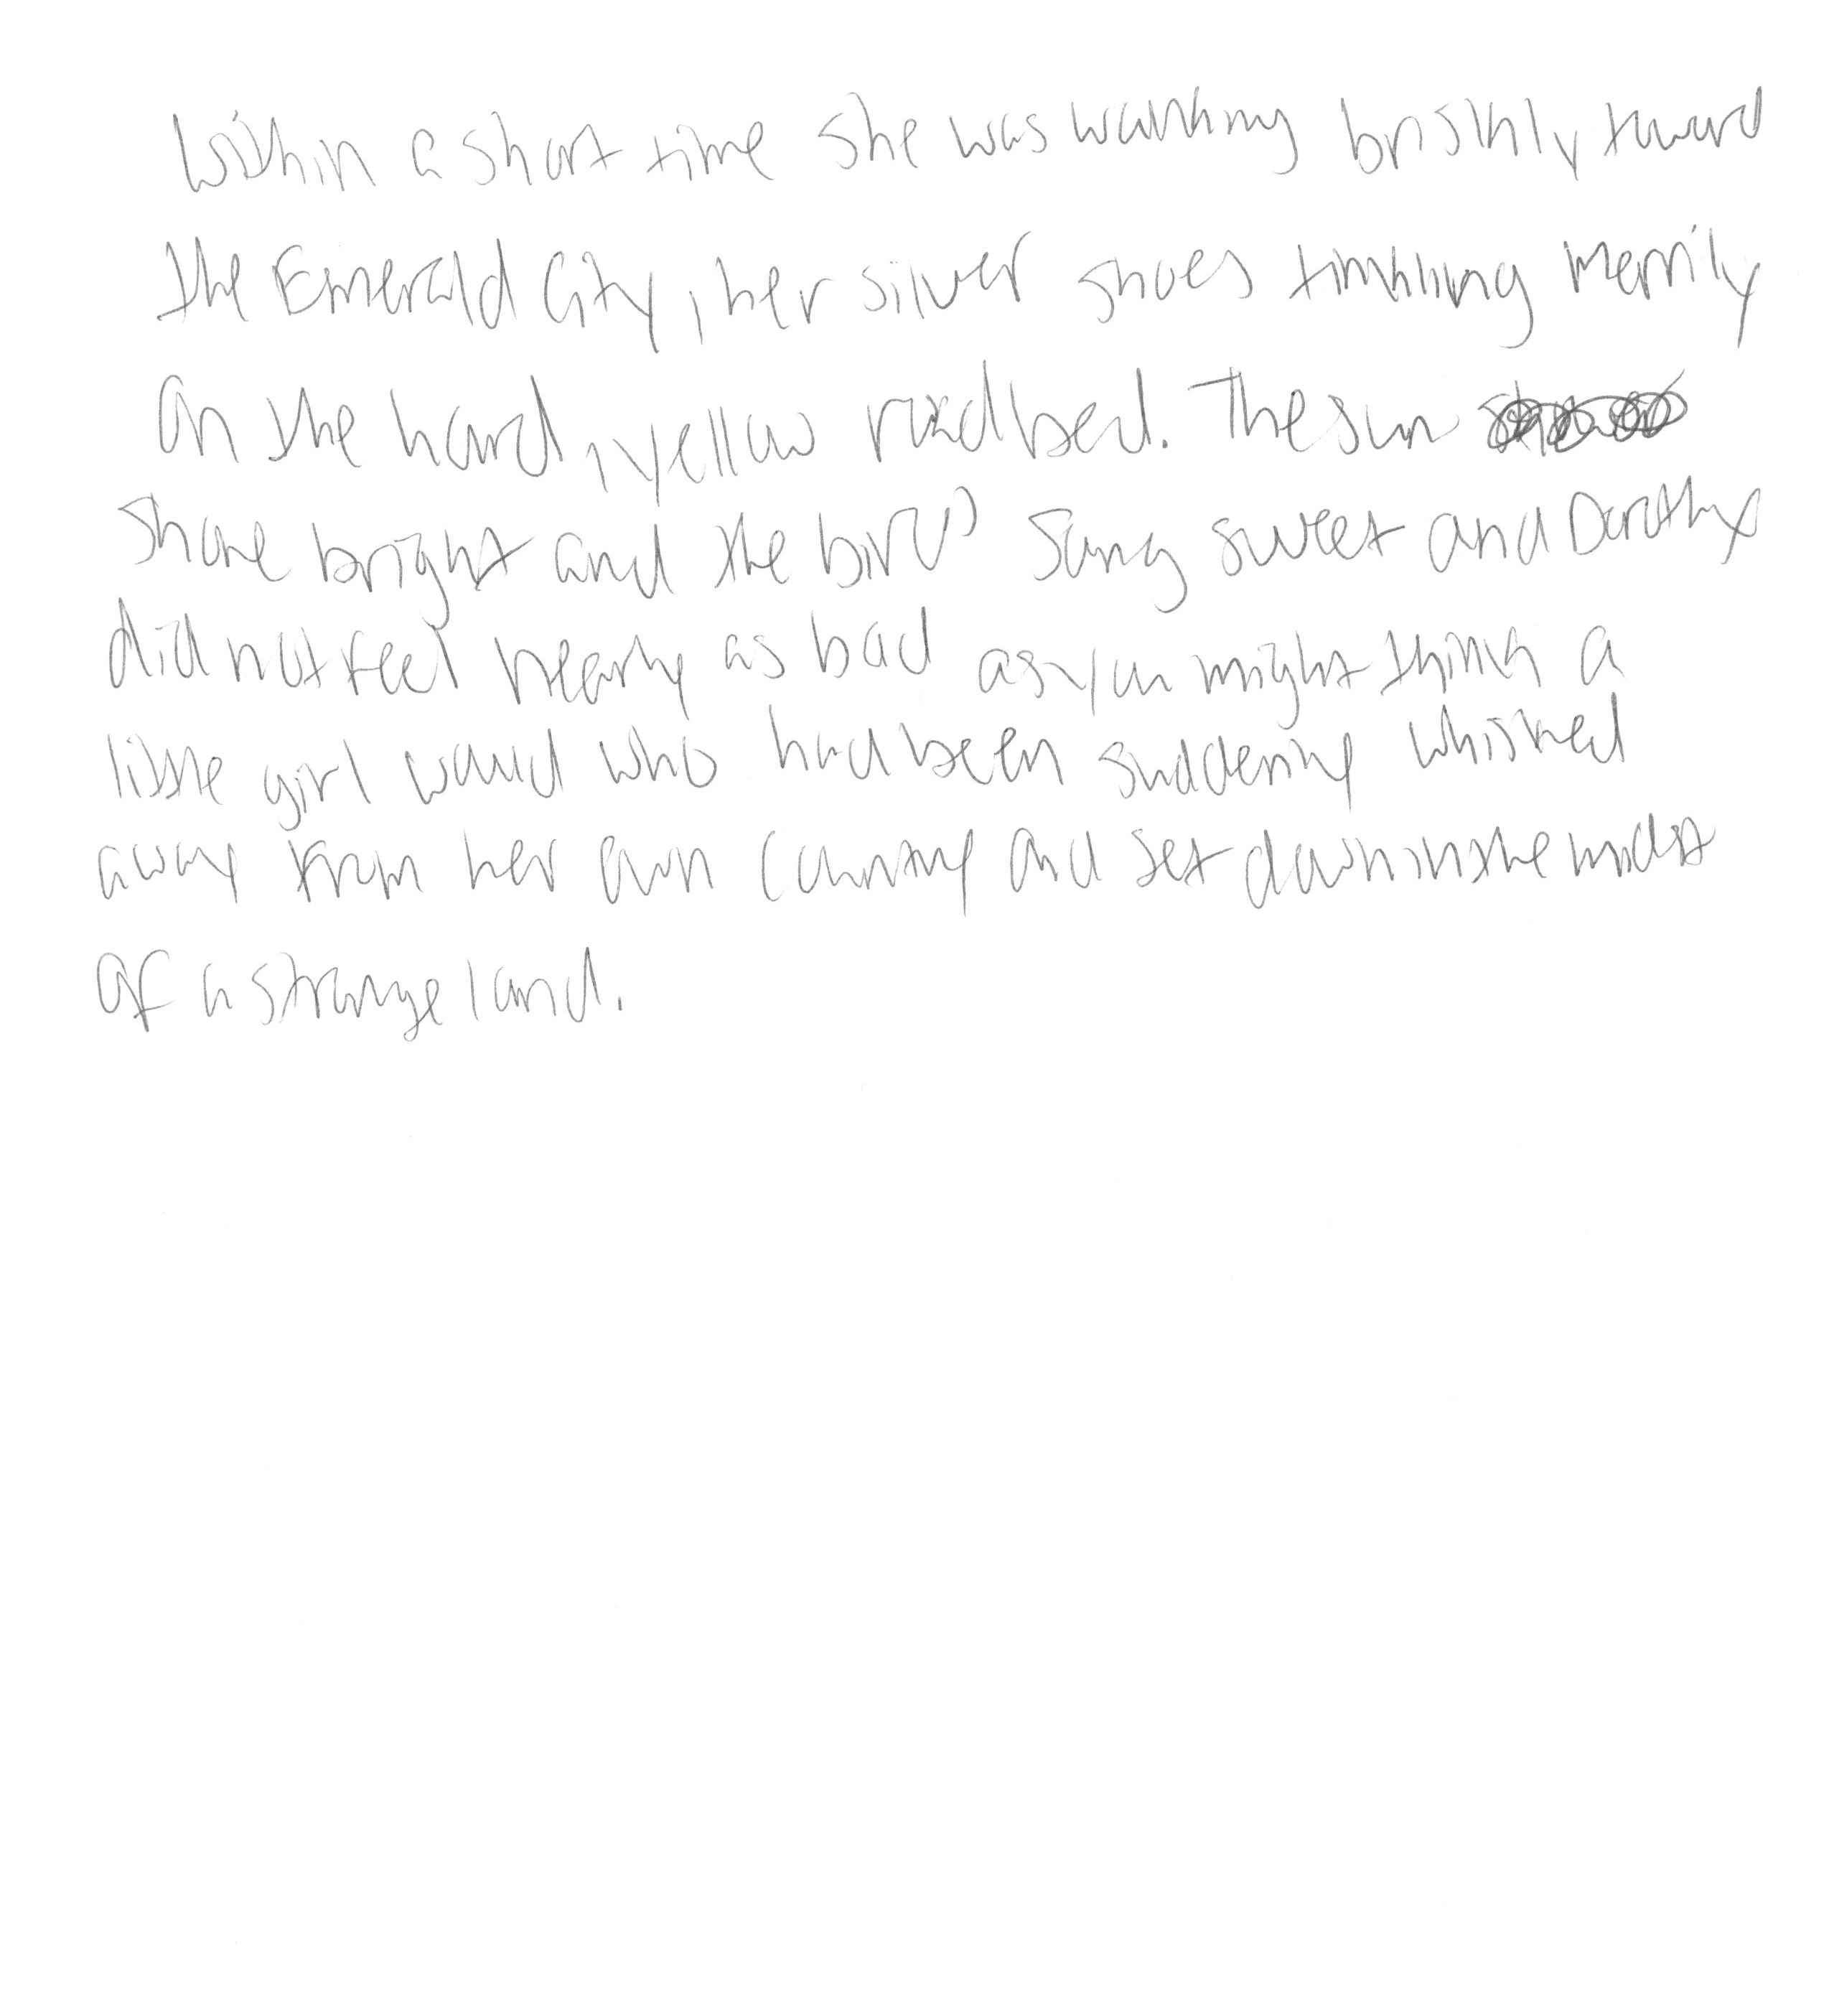 Within a short time she was walking briskly toward
the Emerald City, her silver shoes tinkling merrily
on the hard, yellow roadbed. The sun
shone bright and the birds sang sweet and Dorothy
did not feel nearly as bad as you might think a
little girl would who had been suddenly whisked
away from her own country and set down in the midst
of a strange land.